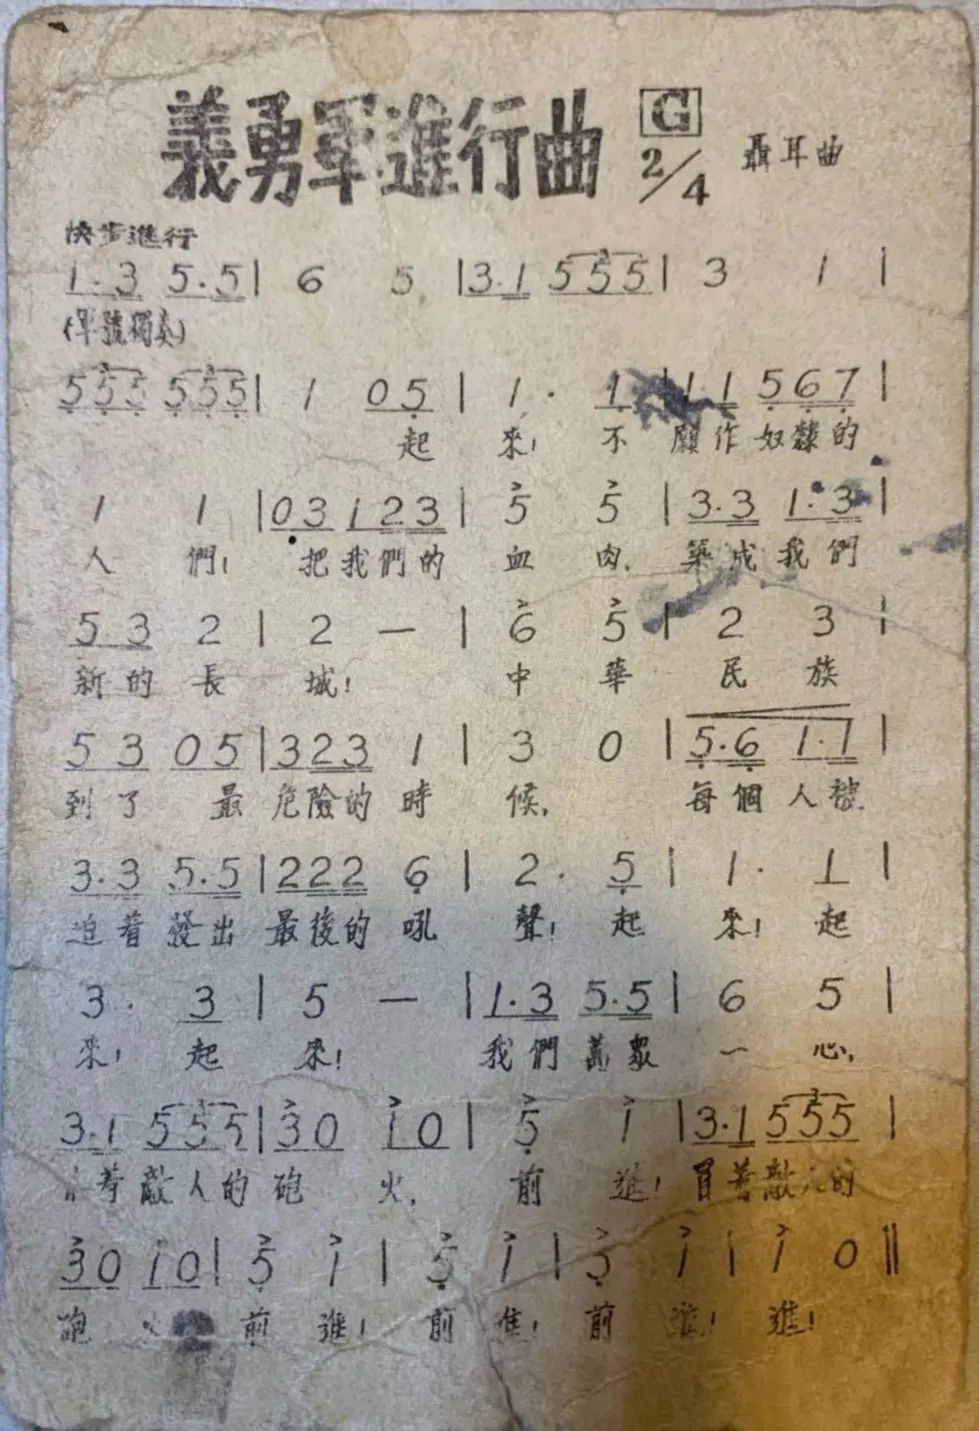 義勇軍進行曲 G 2/4 聶耳曲
快步進行
1.3 5.5 | 6 5 | 3.1 555 | 3 1 |
(軍號獨奏)
555 555 | 1 05 | 1. 1 | 1.1 567 |
起 來! 不 願作奴隸的
1 1 | 03 123 | 5 5 | 3.3 1.3 |
人 們! 把我們的 血 肉, 築成我們
53 2 | 2 — | 6 5 | 2 3 |
新的長 城! 中 華 民 族
53 05 | 323 1 | 3 0 | 5.6 1.1 |
到了 最 危險的時 候, 每個人被
3.3 5.5 | 222 6 | 2. 5 | 1. 1 |
迫着發出 最後的 吼 聲! 起 來! 起
3. 3 | 5 — | 1.3 5.5 | 6 5 |
來! 起 來! 我們萬眾 一 心,
3.1 555 | 30 10 | 5 1 | 3.1 555 |
着敵人的 砲 火, 前 進! 冒着敵人的
30 10 | 5 1 | 5 1 | 5 1 | 1 0 ||
砲 前 進! 前 進! 前 進! 進!